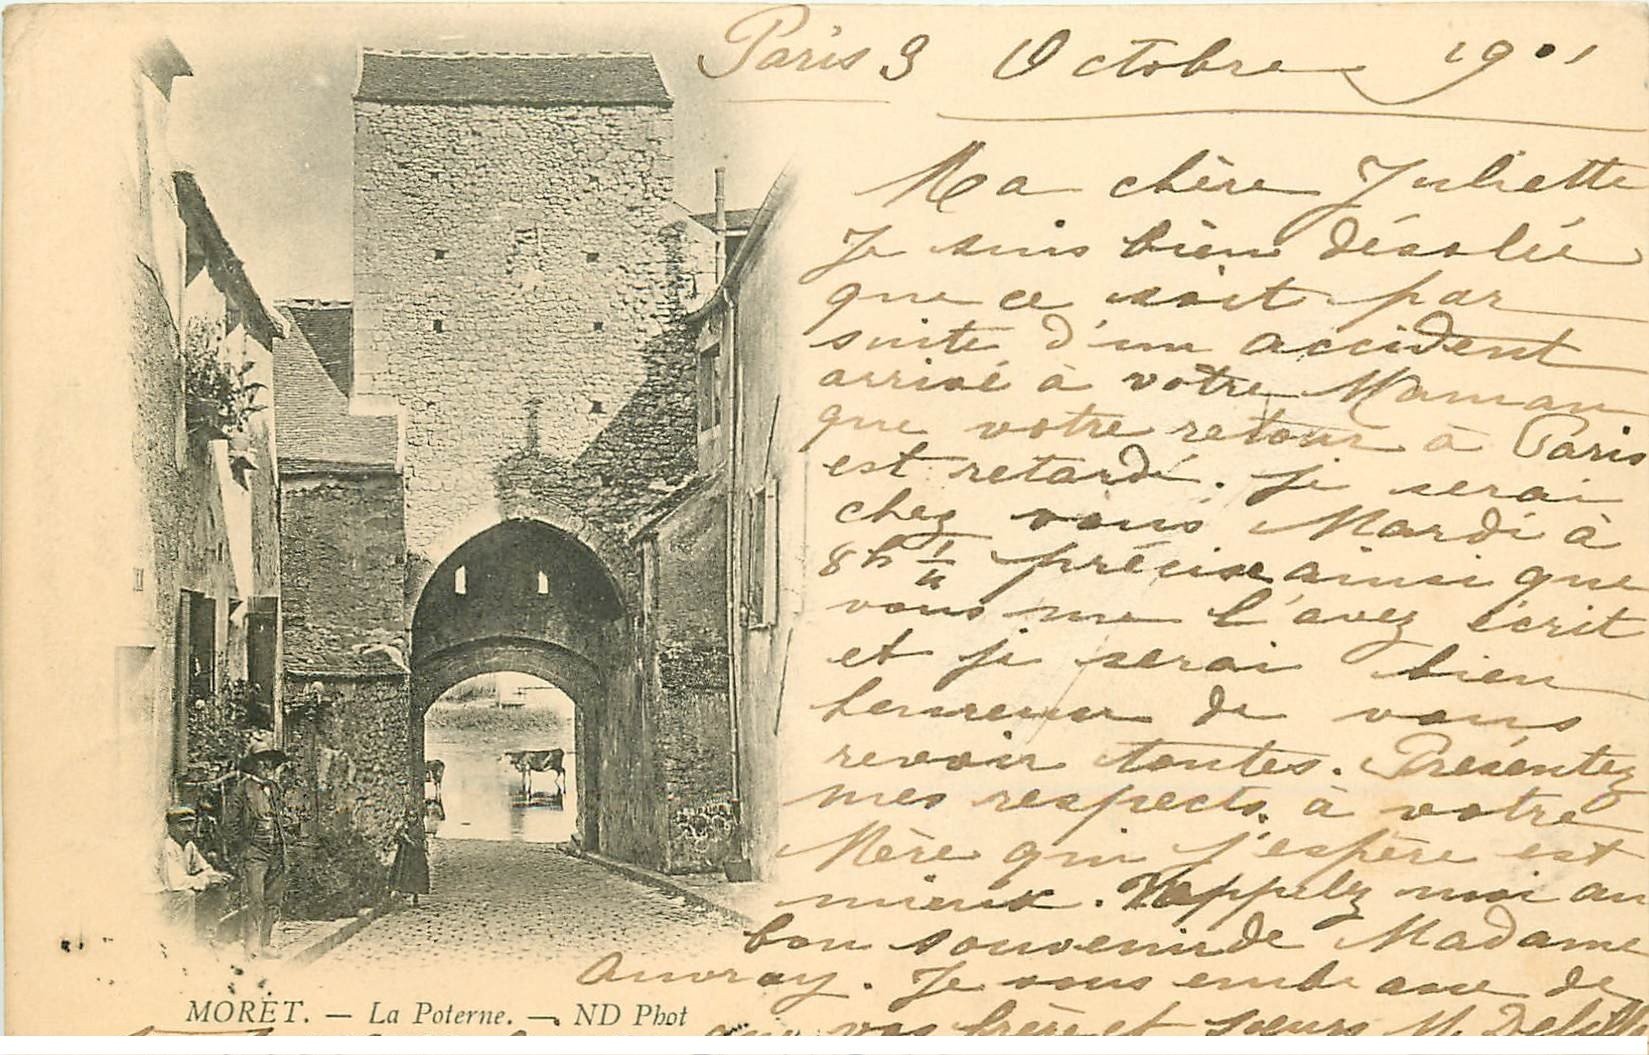 Paris 3 Octobre 1901
Ma chère Juliette
Je suis bien désolée
que ce soit par
suite d'un accident
arrivé à votre Maman
que votre retour à Paris
est retardé. Je serai
chez vous Mardi à
8h 1/4 précise ainsi que
vous me l'avez écrit
et je serai bien
heureuse de vous
revoir toutes. Présentez
mes respects à votre
Mère qui j'espère est
mieux. Rappelez moi au
bon souvenir de Madame
Auvray. Je vous embrasse de
que vos frère et sœurs M.
MORET. — La Poterne. — ND Phot